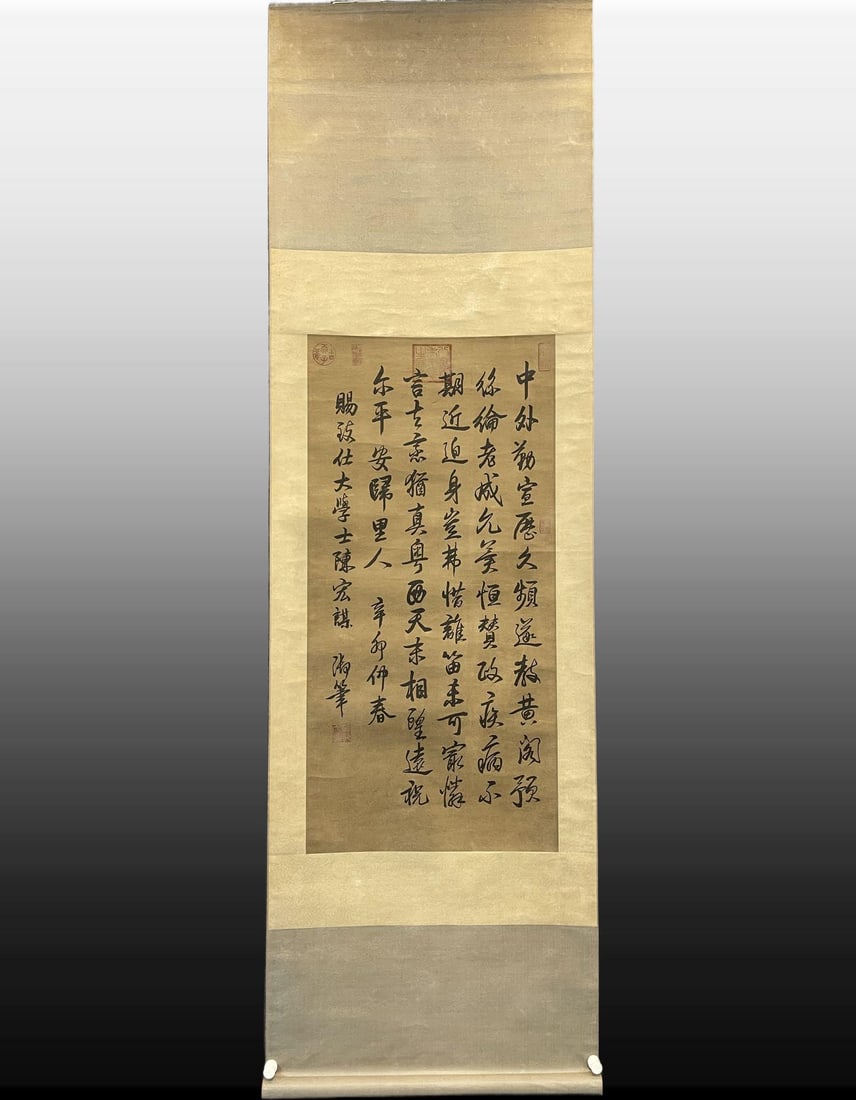 中外勤宣歷久頻遂教黃閣預
絲綸老成允矣恒贊政疾病不
期近迫身豈弗惜離留未可最憐
言去意猶真粵西天末相望遠祝
尔平安歸里人 辛卯仲春
賜致仕大學士陳宏謀 御筆